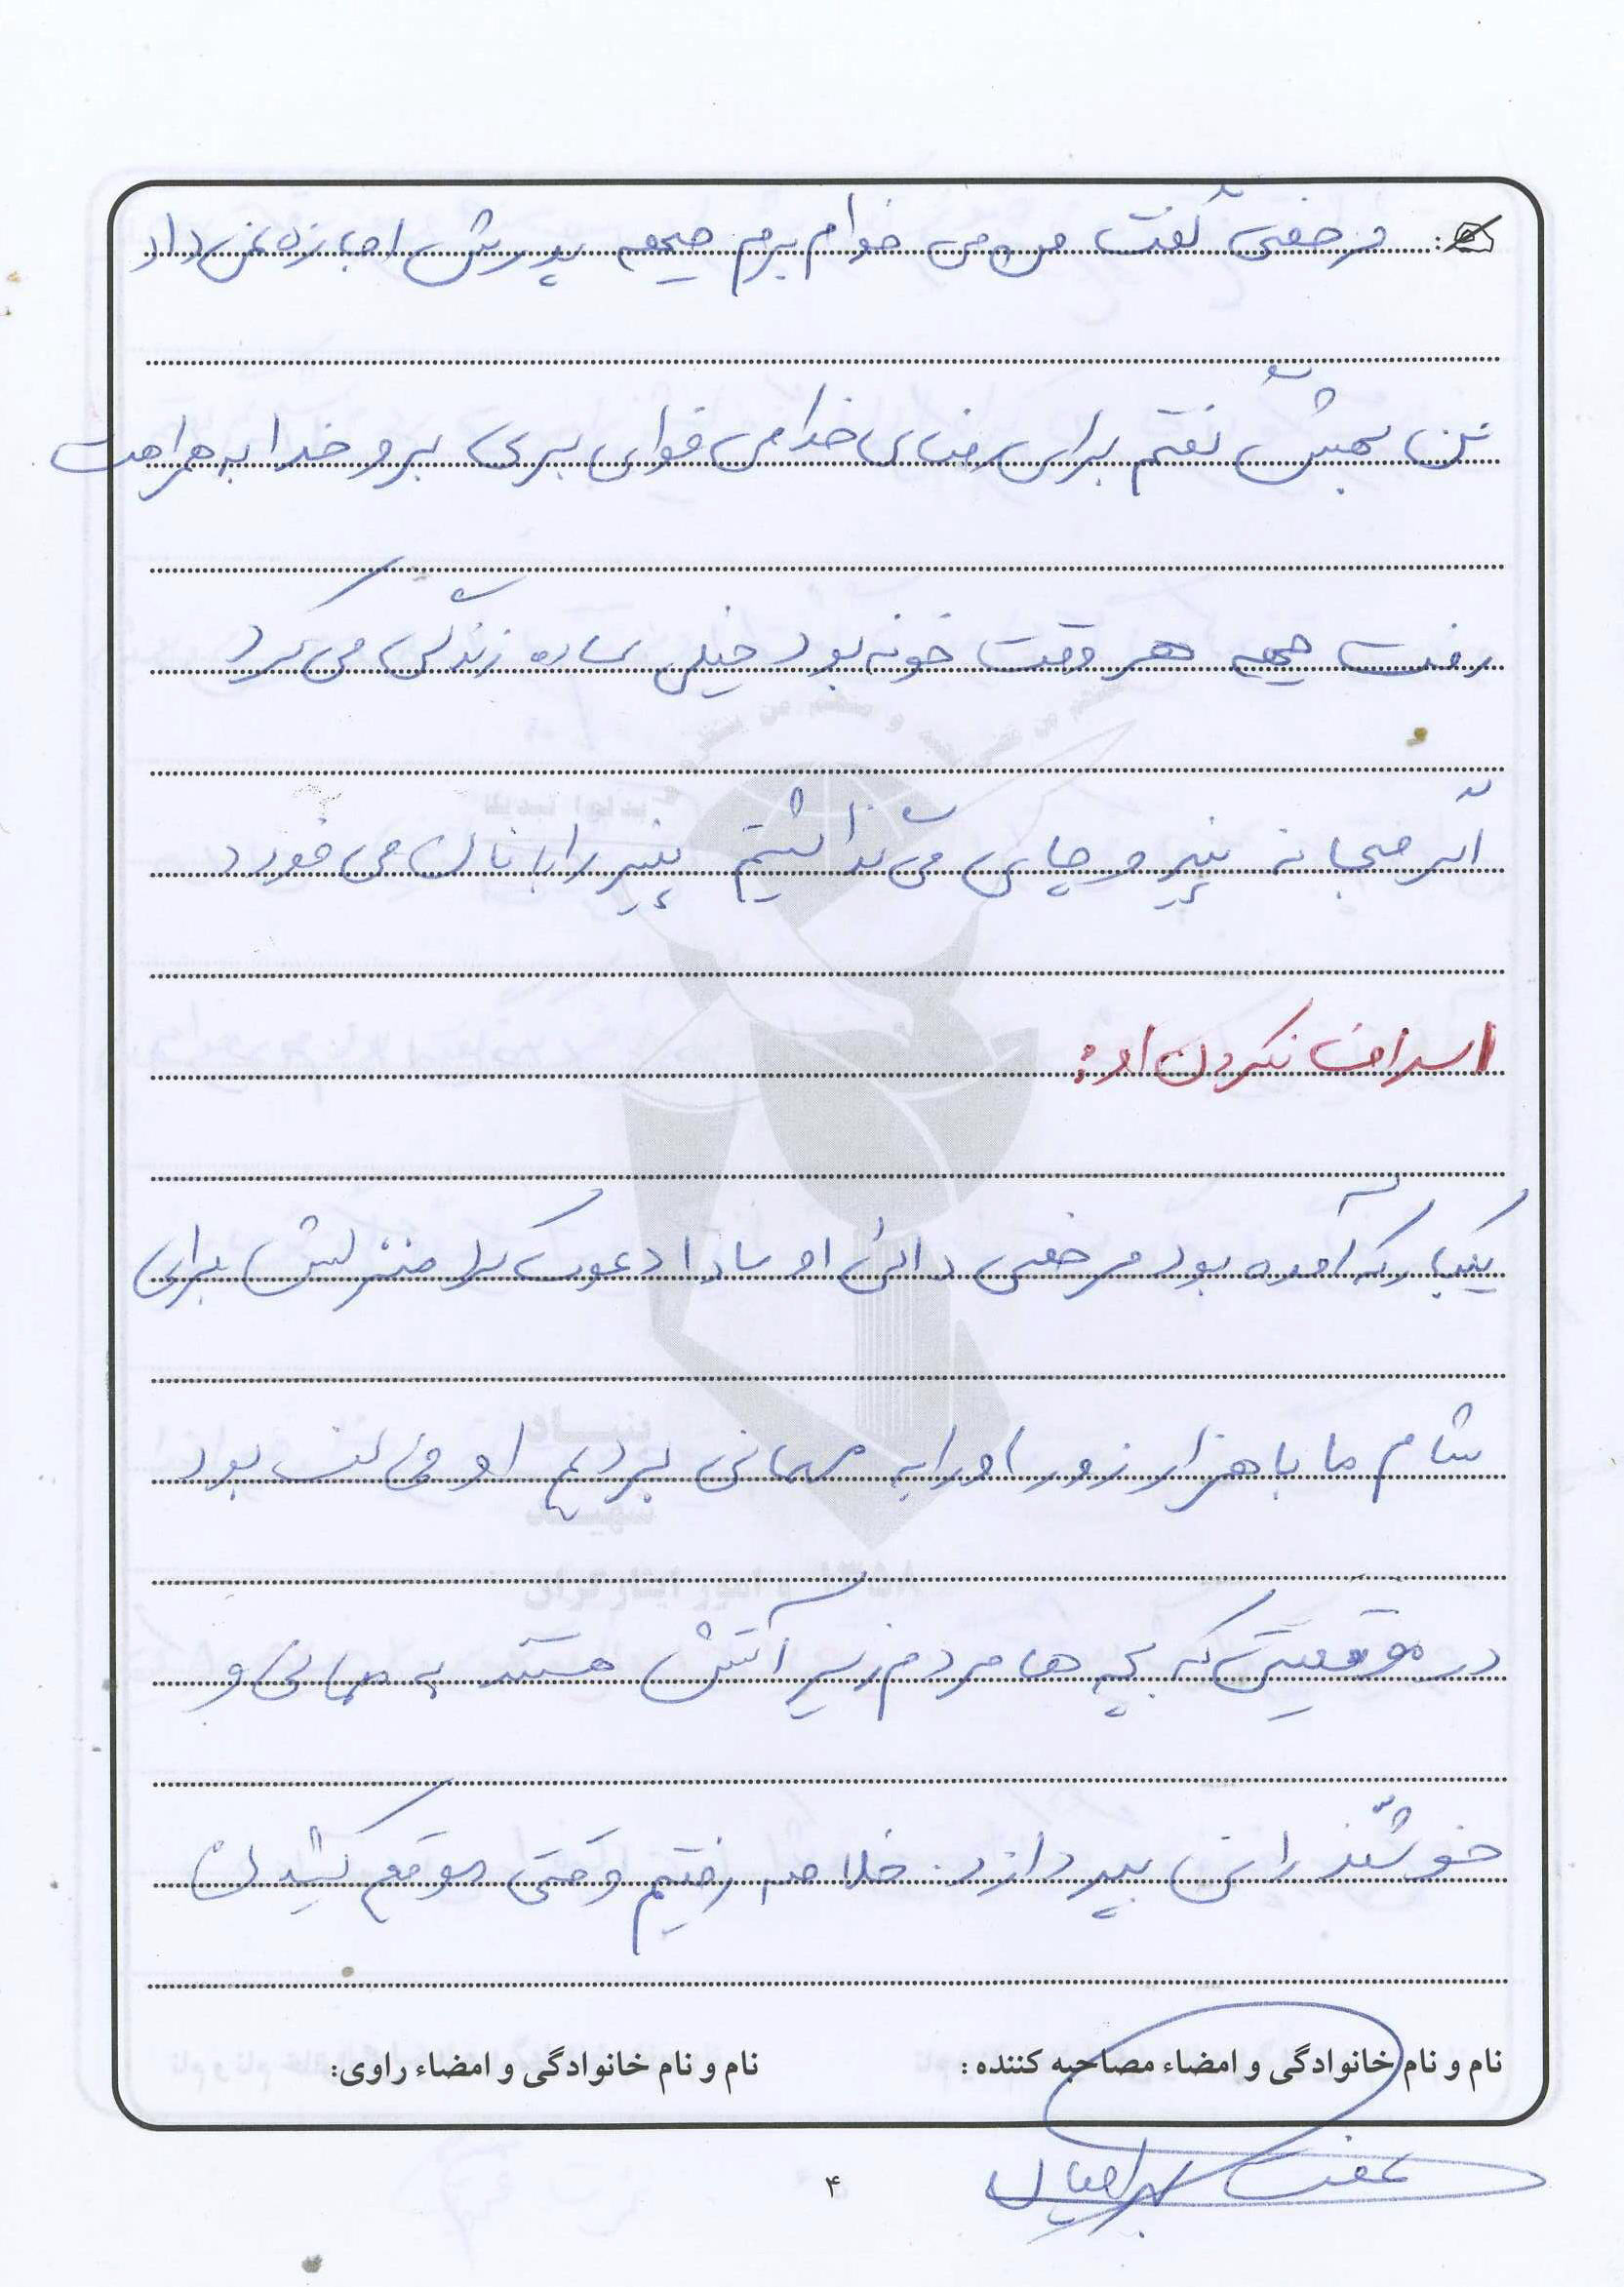 مرخصی گفت من می خوام برم جبهه پدرش اجازه نمی داد
من بهش گفتم برای رضای خدا می خوای بری برو خدا به همراهت
رفت جبهه هر وقت خونه بود خیلی ساده زندگی می کرد
اگر صبحانه پنیر و چای می گذاشتیم پنیر را با نان می خورد
اسراف نکردن او:
یکبار که آمده بود مرخصی دائی او ما را دعوت کرد منزلش برای
شام ما با هزار زور او را به مهمانی بردیم او مخالف بود
در موقعیتی که بچه ها مردم زیر آتش هستند به مهمانی و
خوشگذرانی بپردازد. خلاصه رفتیم وقتی موقع کشیدن
نام و نام خانوادگی و امضاء مصاحبه کننده :
نام و نام خانوادگی و امضاء راوی:
عفت
۴